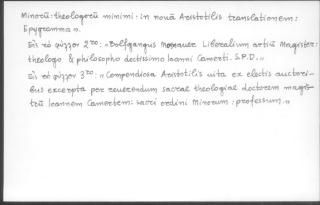 Minorū: theologorū minimi: in nouā Aristotilis translationem:
Epygramma ».
Εἰς τό φύλλον 2ᵐᵒ: „Volfgangus Mosnauer Liberalium artiū Magister:
theologo & philosopho doctissimo Ioanni Camerti. S.P.D.„
Εἰς τό φύλλον 3ᵐᵒ. „Compendiosa Aristotilis uita ex electis auctori-
bus excerpta per reuerendum sacrae theologiae doctorem magis-
trū Ioannem Camertem: sacri ordini Minorum: professum.„